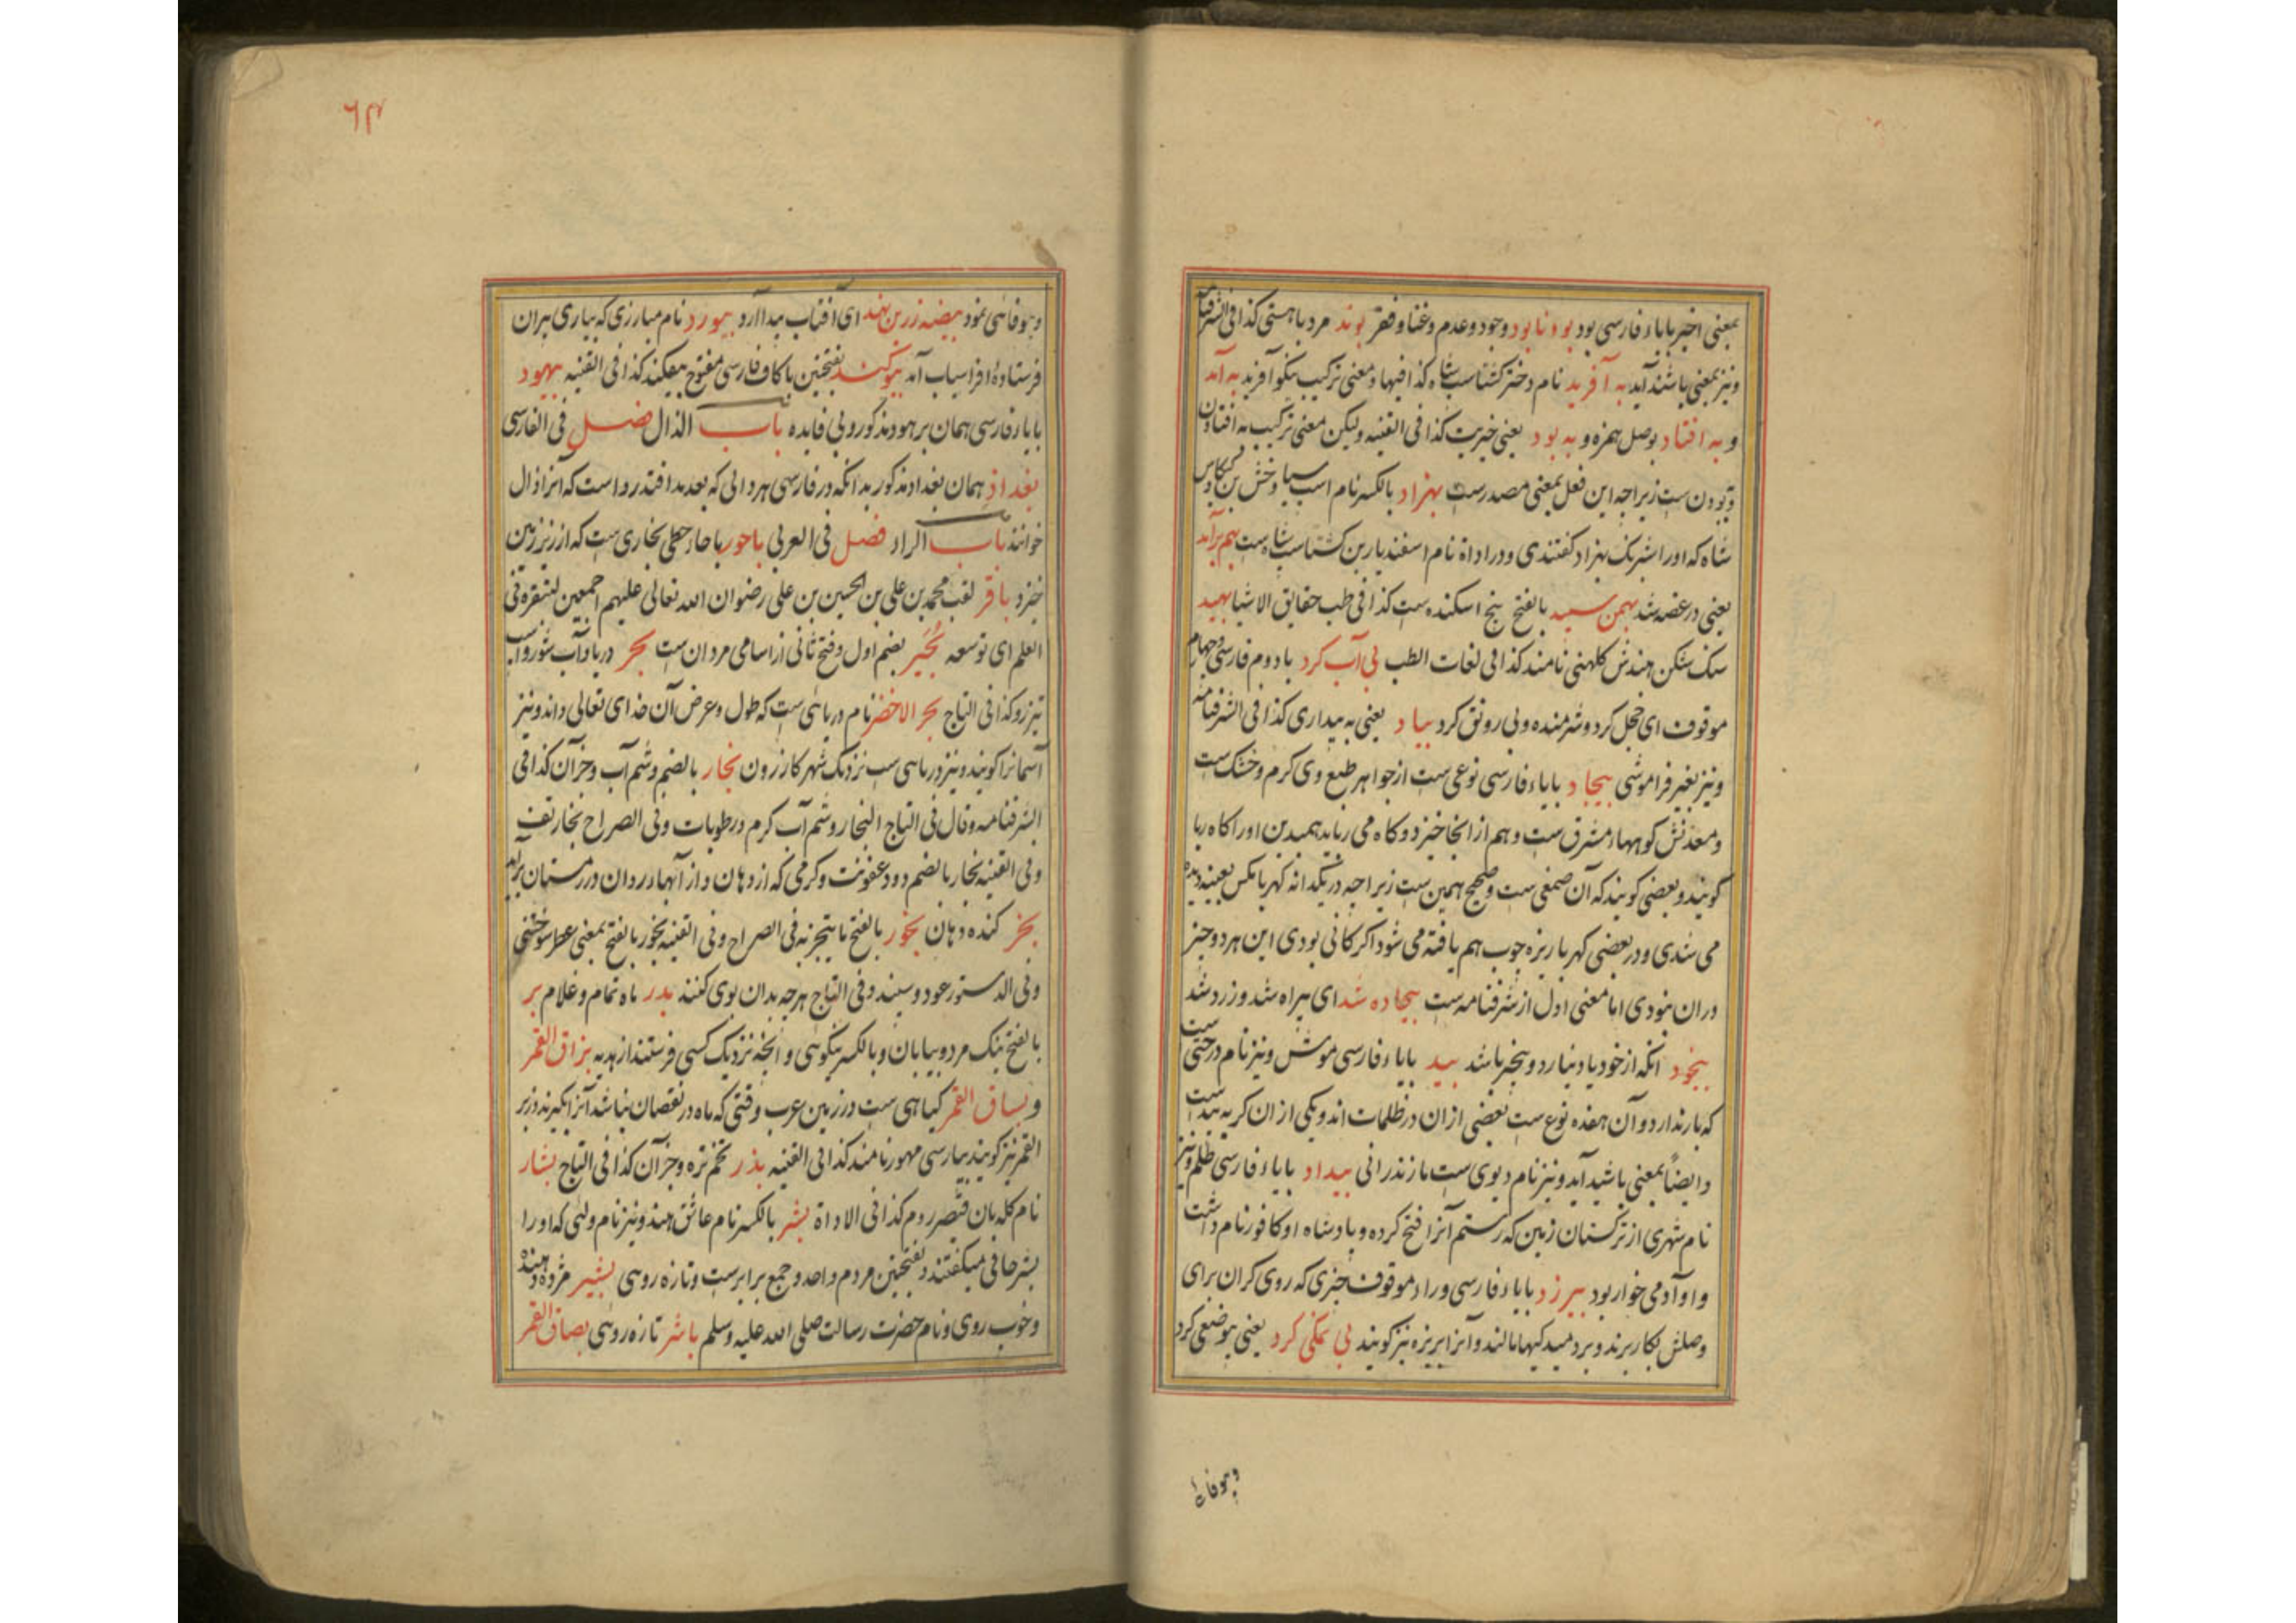 بمعنی اخیر بایاء فارسی بود بود نابود وجود و عدم و غنا و فقر بوند مرد باهستی کذا فی الشرفنامه
و نیز بمعنی باشند آید به آفرید نام دختر کشتاسب شاه کذا فیها و معنی ترکیب نیکو آفرید به آمد
و به افتاد بوصل همزه و به بود یعنی خیریت کذا فی القنیه و لیکن معنی ترکیب به افتادن
و بودن ست زیراچه این فعل بمعنی مصدرست بهزاد بالکسر نام اسب سیاوخش بن کیکاوس
شاه که اورا شبرنک بهزاد کفتندی و در اداة نام اسفندیار بن کشتاسب شاه ست بهم برآمد
یعنی در غصه شد بهمن سپید بالفتح بیخ اسکنده ست کذا فی طب حقایق الاشیا بهید
سنک شکن هندش کلهتی نامند کذا فی لغات الطب بی آب کرد با دوم فارسی و چهارم
موقوف ای خجل کرد و شرمنده و بی رونق کرد بیاد یعنی به بیداری کذا فی الشرفنامه
و نیز بغیر فراموشی بیجاد بایاء فارسی نوعی ست از جواهر طبع وی کرم و خشک ست
و معدنش کوهها مشرق ست و هم از انجا خیزد و کاه می رباید همبدین اورا کاه ربا
کویند و بعضی کویند که آن صمغی ست و صحیح همین ست زیراچه در یکدانه کهربا مکس بعینه دیده
می شدی و در بعضی کهربا ریزه چوب هم یافته می شود اکر کانی بودی این هر دو چیز
دران نبودی اما معنی اول از شرفنامه ست بیجاده شد ای بیراه شد و زرد شد
بیخود انکه از خود یاد نیارد و بیخبر باشد بید بایاء فارسی موش و نیز نام درختی ست
که بار ندارد و آن هفده نوع ست بعضی ازان در ظلمات اند و یکی ازان کربه بید ست
و ایضاً بمعنی باشید آید و نیز نام دیوی ست مازندرانی بیداد بایاء فارسی ظلم و نیز
نام شهری از ترکستان زمین که رستم آنرا فتح کرده و پادشاه او کافور نام داشت
و او آدمی خوار بود بیرزد بایاء فارسی و راء موقوف چیزی که روی کران برای
وصلش بکار برند و بر دمیدکیها مالند و آنرا بیریزه نیز کویند بی نمکی کرد یعنی بیوضعی کرد
و بیوفائ
۶۴
و بیوفائی نمود بیضه زرین نهد ای آفتاب بدا آرد بیورد نام مبارزی که بیاری پیران
فرستادهٔ افراسیاب آمد بیوکند بفتحتین با کاف فارسی مفتوح بیفکند کذا فی القنیه بیهود
بایاء فارسی همان برهود مذکور و بی فایده باب الذال فصل فی الفارسی
بغداذ همان بغداد مذکور بدانکه در فارسی هر دالی که بعد مد افتد رواست که آنرا ذال
خوانند باب الراء فصل فی العربی باحور با حاء حطی بخاری ست که از زیر زمین
خیزد باقر لقب محمد بن علی بن الحسین بن علی رضوان الله تعالی علیهم اجمعین لتبقره فی
العلم ای توسعه بُجَیر بضم اول و فتح ثانی از اسامی مردان ست بحر دریا و آب شور و اسب
تیزرو کذا فی التاج بحر الاخضر نام دریائی ست که طول و عرض آن خدای تعالی داند و نیز
آسمانرا کویند و نیز دریائی ست نزدیک شهر کازرون بخار بالضم و شم آب و جزآن کذا فی
الشرفنامه و قال فی التاج البخار و شم آب کرم و رطوبات و فی الصراح بخار تف
و فی القنیه بخار بالضم دود عفونت و کرمی که از دهان و از آبها در روان در زمستان برآید
بخر کنده دهان بخور بالفتح ما یتبخر به فی الصراح و فی القنیه بخور بالفتح بمعنی عطر سوختنی
و فی الدستور عود و سپند و فی التاج هرچه بدان بوی کنند بدر ماه تمام و غلام بر
بالفتح نیک مرد و بیابان و بالکسر نیکوئی و انچه نزدیک کسی فرستند از هدیه بزاق القمر
و بساق القمر کیاهی ست در زمین عرب وقتی که ماه در نقصان نباشد آنرا کیرند و زبر
القمر نیز کویند بپارسی مهور نامند کذا فی القنیه بذر تخم تره و جزآن کذا فی التاج بشار
نام کله بان قیصر روم کذا فی الاداة بشر بالکسر نام عاشق هند و نیز نام ولئی که اورا
بشر حافی میکفتند و بفتحتین مردم واحد و جمع برابرست و تازه روئی بشیر مژده دهنده
و خوب روی و نام حضرت رسالت صلی الله علیه وسلم باشر تازه روئی بصاق القمر